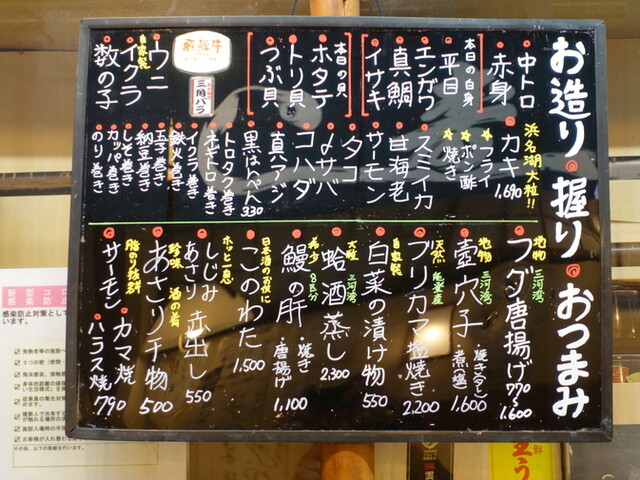 お造り・握り・おつまみ
中トロ
赤身
本日の白身
平目
エンガワ
真鯛
イサキ
本日の貝
ホタテ
トリ貝
つぶ貝
飛騨牛
三角バラ
ウニ
自家製
イクラ
数の子
浜名湖大粒!!
カキ 1,690
フライ
ポン酢
焼き
スミイカ
甘海老
サーモン
タコ
〆サバ
コハダ
真アジ
黒はんぺん 330
トロタク巻き
ネギトロ巻き
イクラ巻き
鉄火巻き
玉子巻き
納豆巻き
しそ巻き
カッパ巻き
のり巻き
地物 三河湾
フグ唐揚げ 770~1,600
地物 三河湾
壺穴子 ・焼き(タレ) ・煮(塩) 1,600
天然 能登産
ブリカマ塩焼き 2,200
自家製
白菜の漬け物 550
大粒 三河湾
蛤酒蒸し 2,300
希少 8匹分
鰻の肝 ・焼き ・唐揚げ 1,100
日本酒のお供に
このわた 1,500
ホッと一息
しじみ
あさり 赤出し 550
珍味 酒の肴
あさり干物 500
脂のり抜群
サーモン ・カマ焼 ・ハラス焼 790
新型コロ
感染防止
感染防止対策として
います。